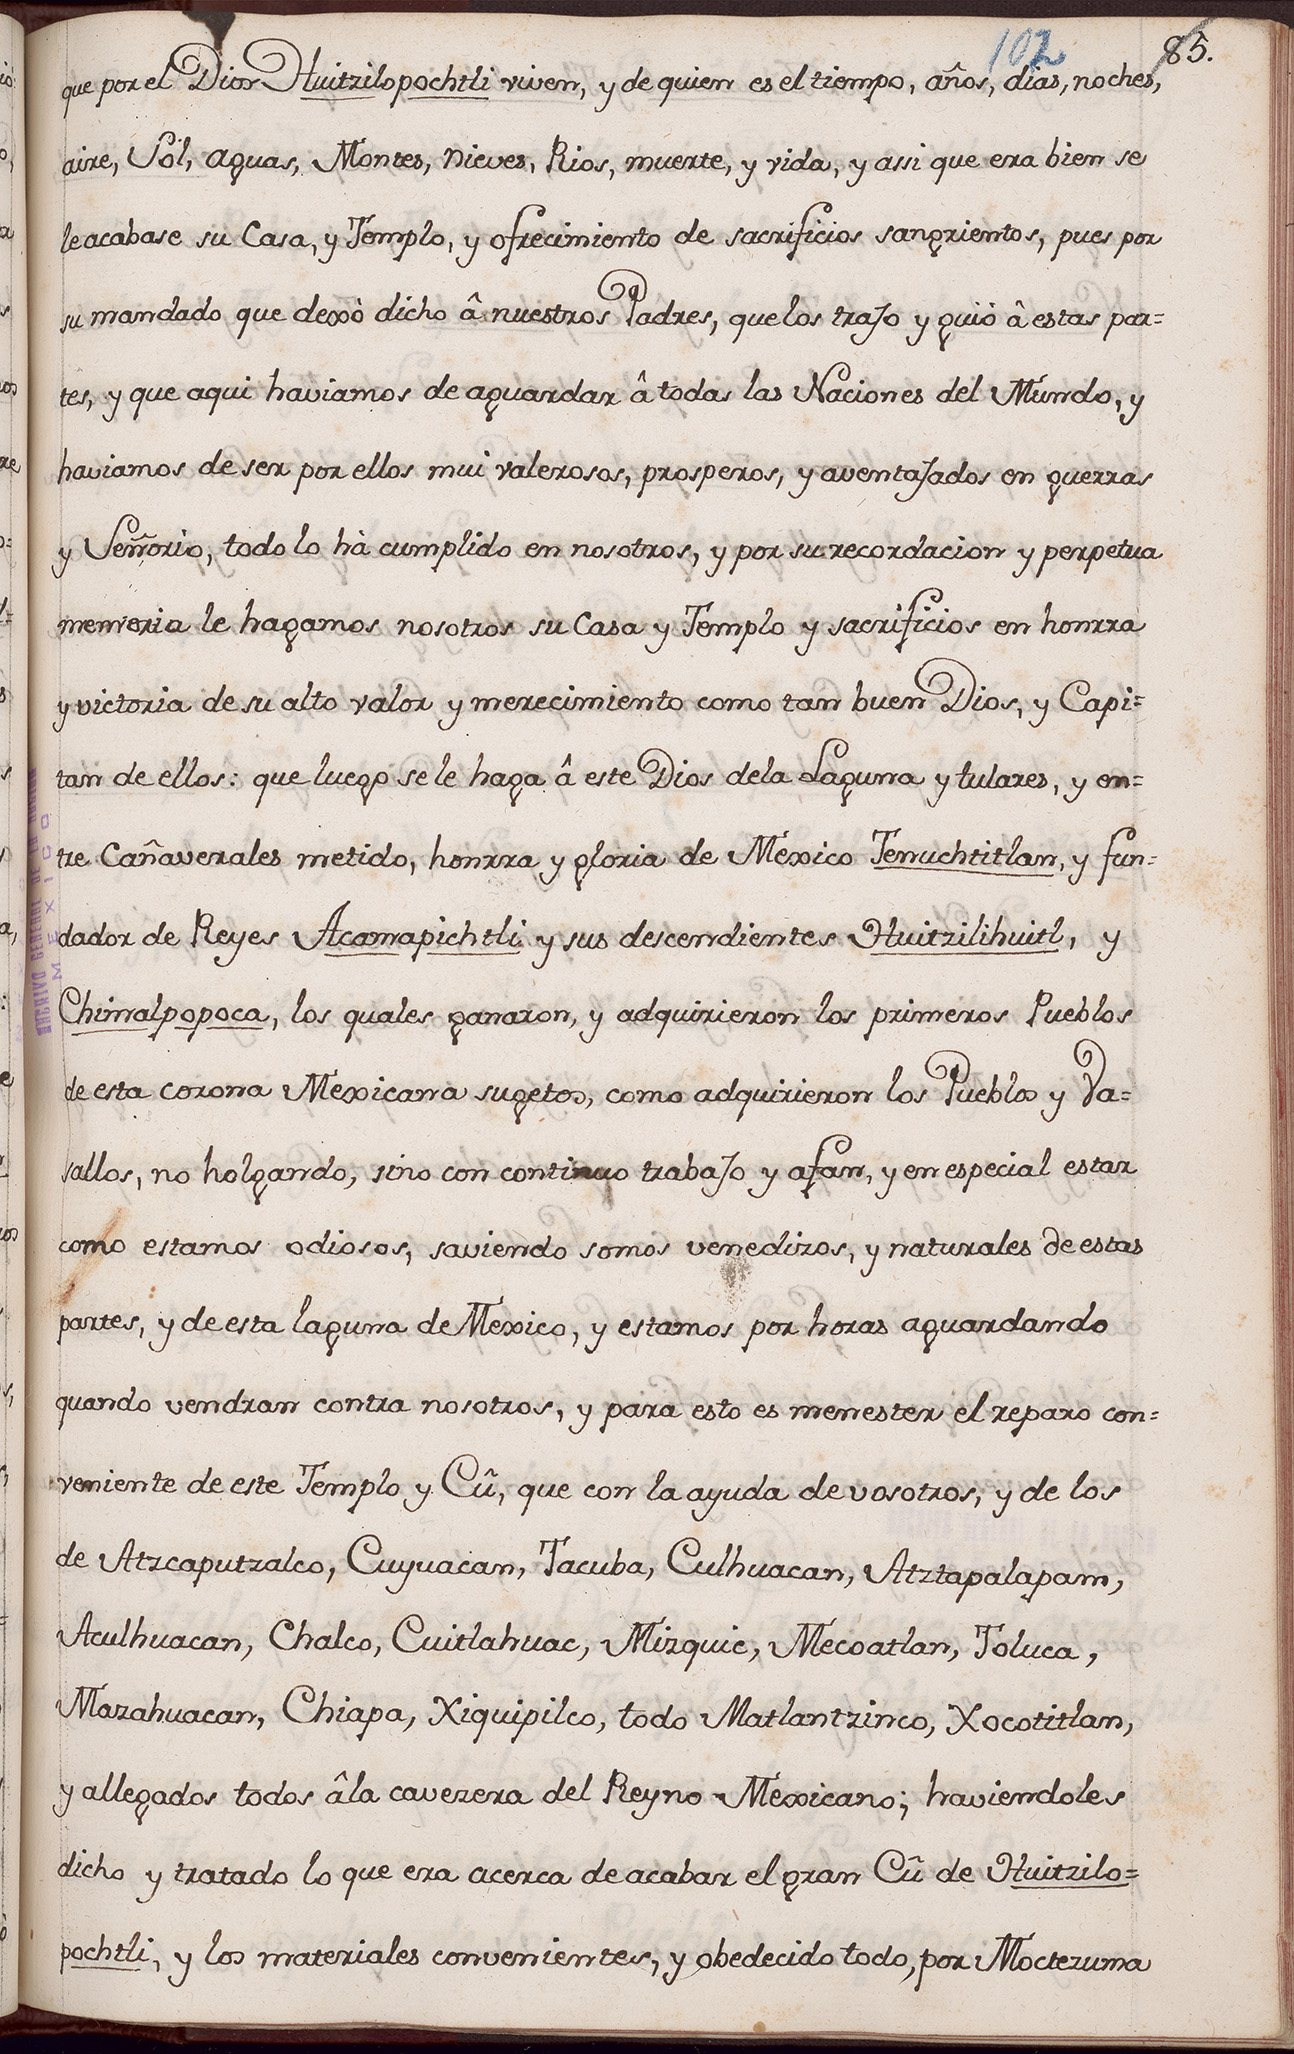 102 85.
que por el Dios Huitzilopochtli viven, y de quien es el tiempo, años, dias, noches,
aire, Sol, aguas, Montes, nieves, Rios, muerte, y vida, y assi que era bien se
le acabase su Casa, y Templo, y ofrecimiento de sacrificios sangrientos, pues por
su mandado que dexò dicho â nuestros Padres, que los trajo y guiö â estas par=
tes, y que aqui haviamos de aguardar â todas las Naciones del Mundo, y
haviamos de ser por ellos mui valerosos, prosperos, y aventajados en guerras
y Señorio, todo lo hà cumplido en nosotros, y por su recordacion y perpetua
memoria le hagamos nosotros su Casa y Templo y sacrificios en honrra
y victoria de su alto valor y merecimiento como tan buen Dios, y Capi=
tan de ellos: que luego se le haga â este Dios dela Laguna y tulares, y en=
tre Cañaverales metido, honrra y gloria de Mexico Tenuchtitlan, y fun=
dador de Reyes Acamapichtli y sus descendientes Huitzilihuitl, y
Chimalpopoca, los quales ganaron, y adquirieron los primeros Pueblos
de esta corona Mexicana sugetos, como adquirieron los Pueblos y Va=
sallos, no holgando, sino con continuo trabajo y afan, y en especial estar
como estamos odiosos, saviendo somos venedizos, y naturales de estas
partes, y de esta laguna de Mexico, y estamos por horas aguardando
quando vendran contra nosotros, y para esto es menester el reparo con=
veniente de este Templo y Cû, que con la ayuda de vosotros, y de los
de Atzcaputzalco, Cuyuacan, Tacuba, Culhuacan, Atztapalapam,
Aculhuacan, Chalco, Cuitlahuac, Mizquic, Mecoatlan, Toluca,
Mazahuacan, Chiapa, Xiquipilco, todo Matlantzinco, Xocotitlan,
y allegados todos âla cavezera del Reyno Mexicano; haviendoles
dicho y tratado lo que era acerca de acabar el gran Cû de Huitzilo=
pochtli, y los materiales convenientes, y obedecido todo, por Moctezuma